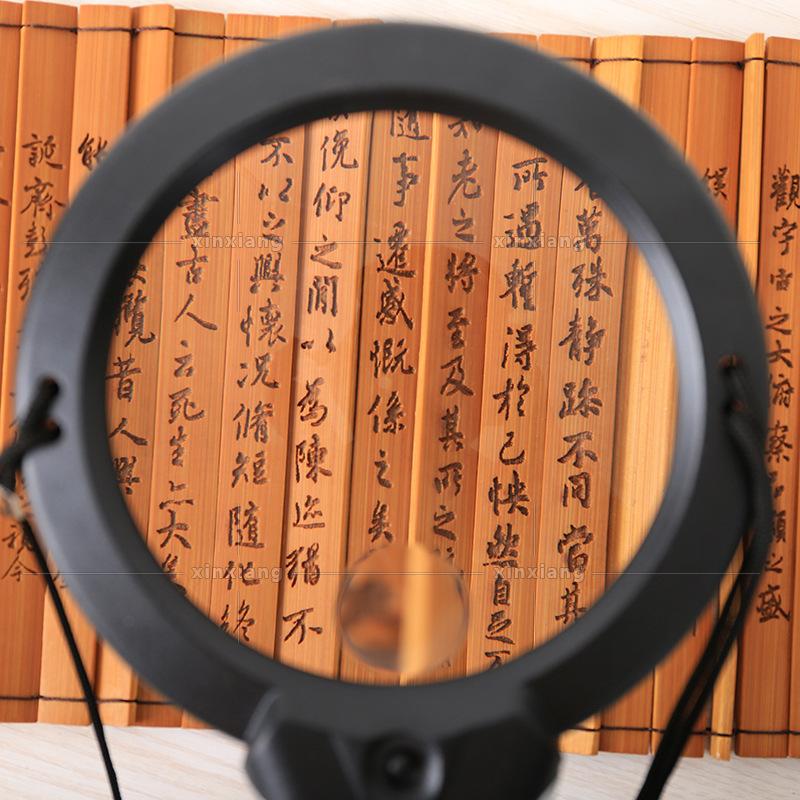 觀宇宙之大俯察品類之盛
萬殊静躁不同當其
所遇蹔得於己怏然自足不
老之將至及其所之
隨事遷感慨係之矣
俛仰之閒以為陳迹猶不
不以之興懷況脩短隨化終
盡古人云死生亦大矣
攬昔人興
能
誕齊彭殤
視今
xinxiang
xinxiang
xinxiang
xinxiang